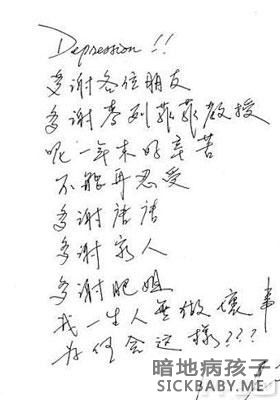 Depression!!
多謝各位朋友
多謝麥列菲菲教授
呢一年來好辛苦
不能再忍受
多謝唐唐
多謝家人
多謝肥姐
我一生人無做壞事
為何會這樣???
暗地病孩子
SICKBABY.ME